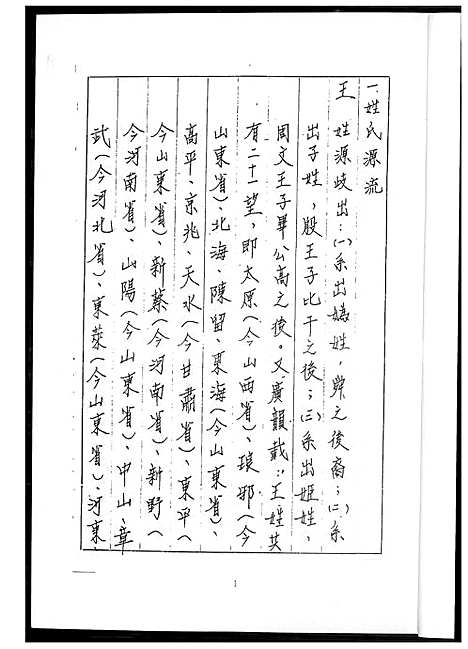 一、姓氏源流
王　姓源歧出：㈠系出媯姓，舜之後裔；㈡系
出子姓，殷王子比干之後；㈢系出姬姓，
周文王子畢公高之後。又廣韻載：王姓共
有二十一望，即太原（今山西省）、琅邪（今
山東省）、北海、陳留、東海（今山東省）、
高平、京兆、天水（今甘肅省）、東平（
今山東省）、新蔡（今河南省）、新野（
今河南省）、山陽（今山東省）、中山、章
武（今河北省）、東萊（今山東省）、河東
1